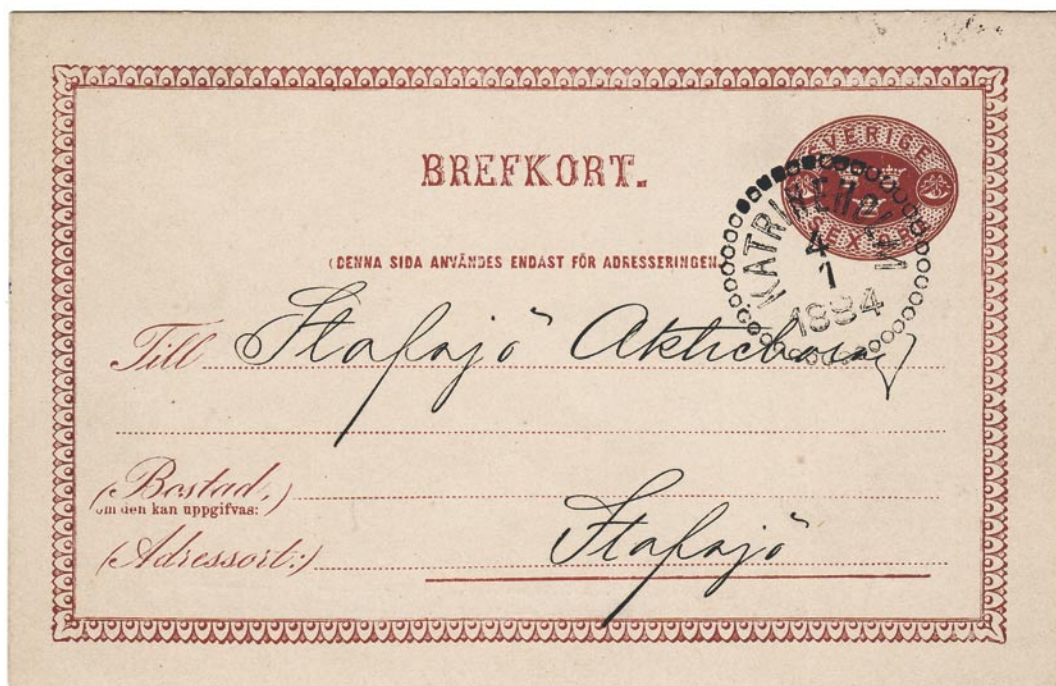 BREFKORT.
SVERIGE
SEX ÖRE
KATRINEHOLM
4
1
1884
(DENNA SIDA ANVÄNDES ENDAST FÖR ADRESSERINGEN.)
Till Stafsjö Aktiebolag
(Bostad,)
om den kan uppgifvas:
(Adressort:) Stafsjö